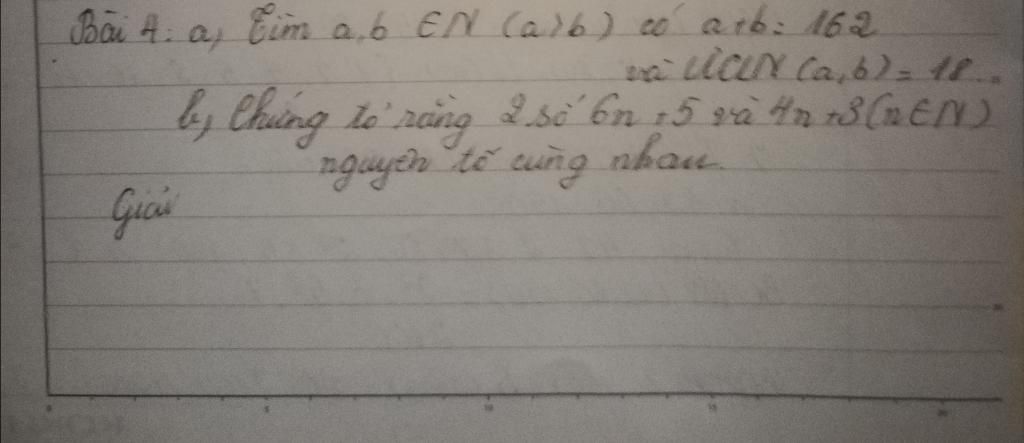 Bài 4: a, Tìm a, b ∈ N (a>b) có a+b = 162
và ƯCLN (a,b) = 18...
b, Chứng tỏ rằng 2 số 6n+5 và 4n+3 (n∈N)
nguyên tố cùng nhau.
Giải
0 5 10 15 20